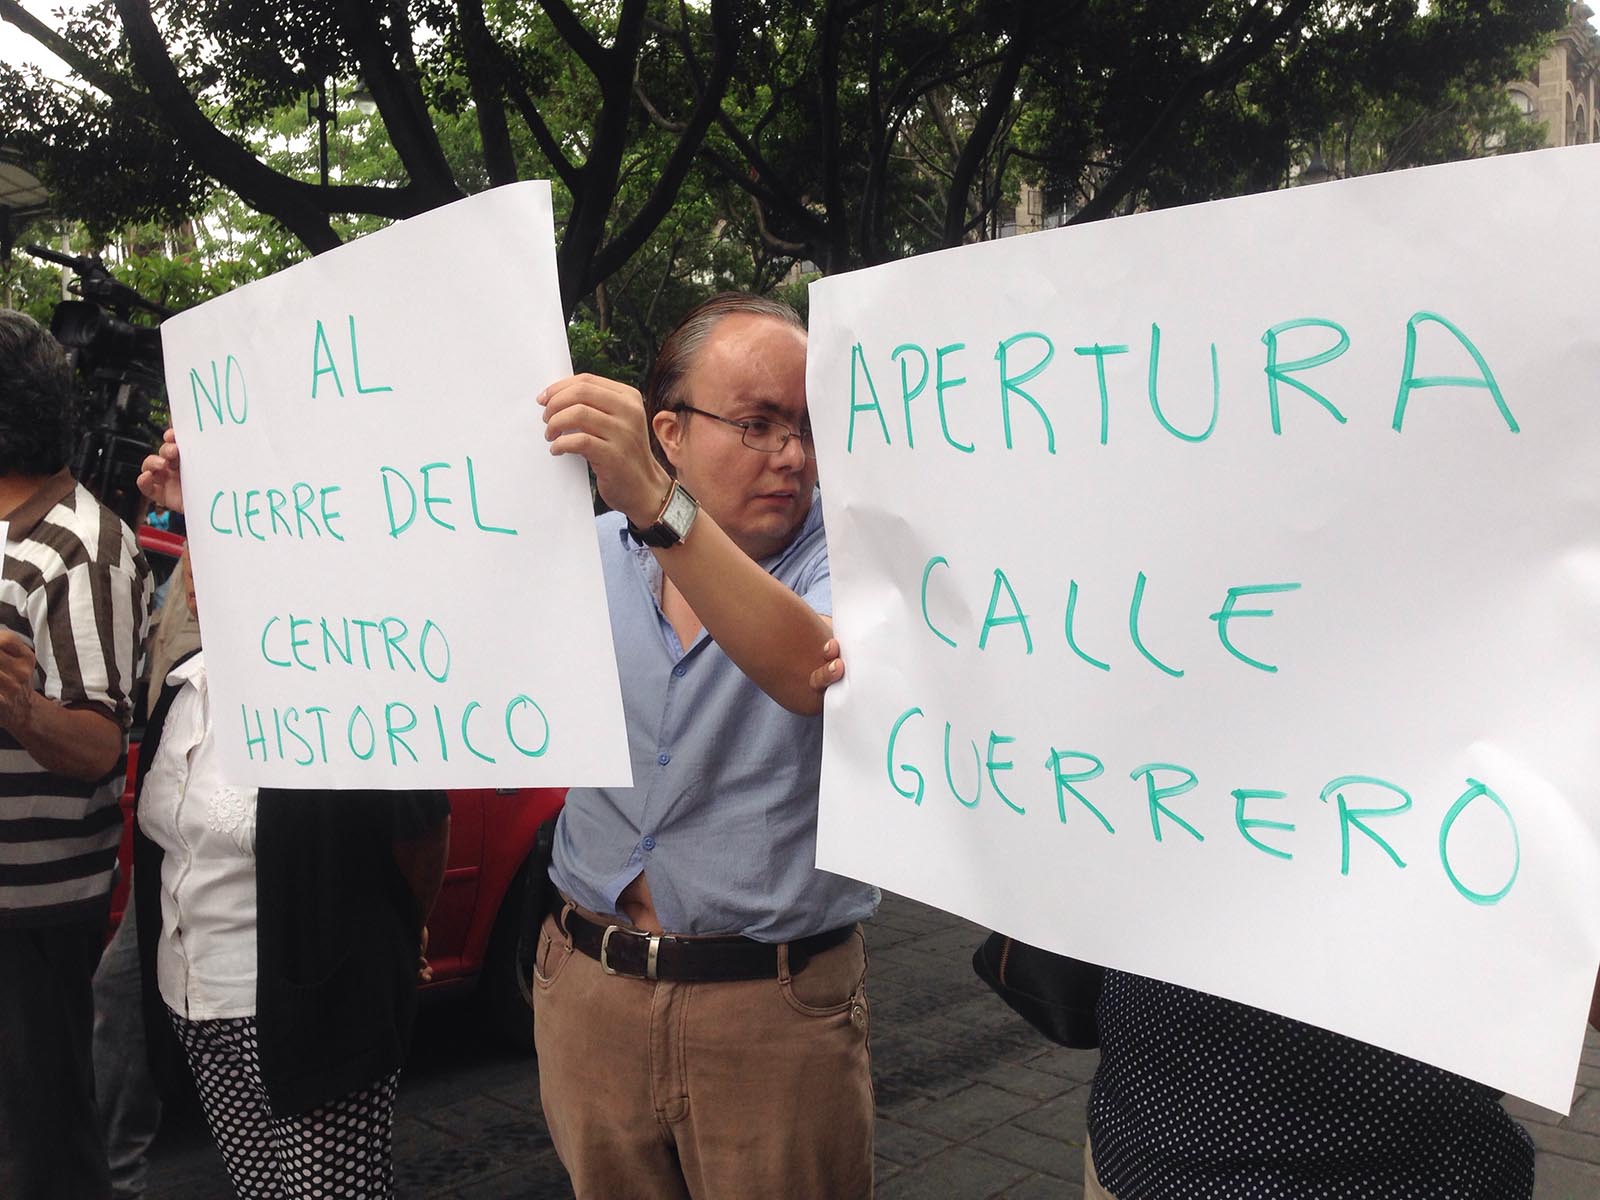 NO AL
CIERRE DEL
CENTRO
HISTORICO
APERTURA
CALLE
GUERRERO